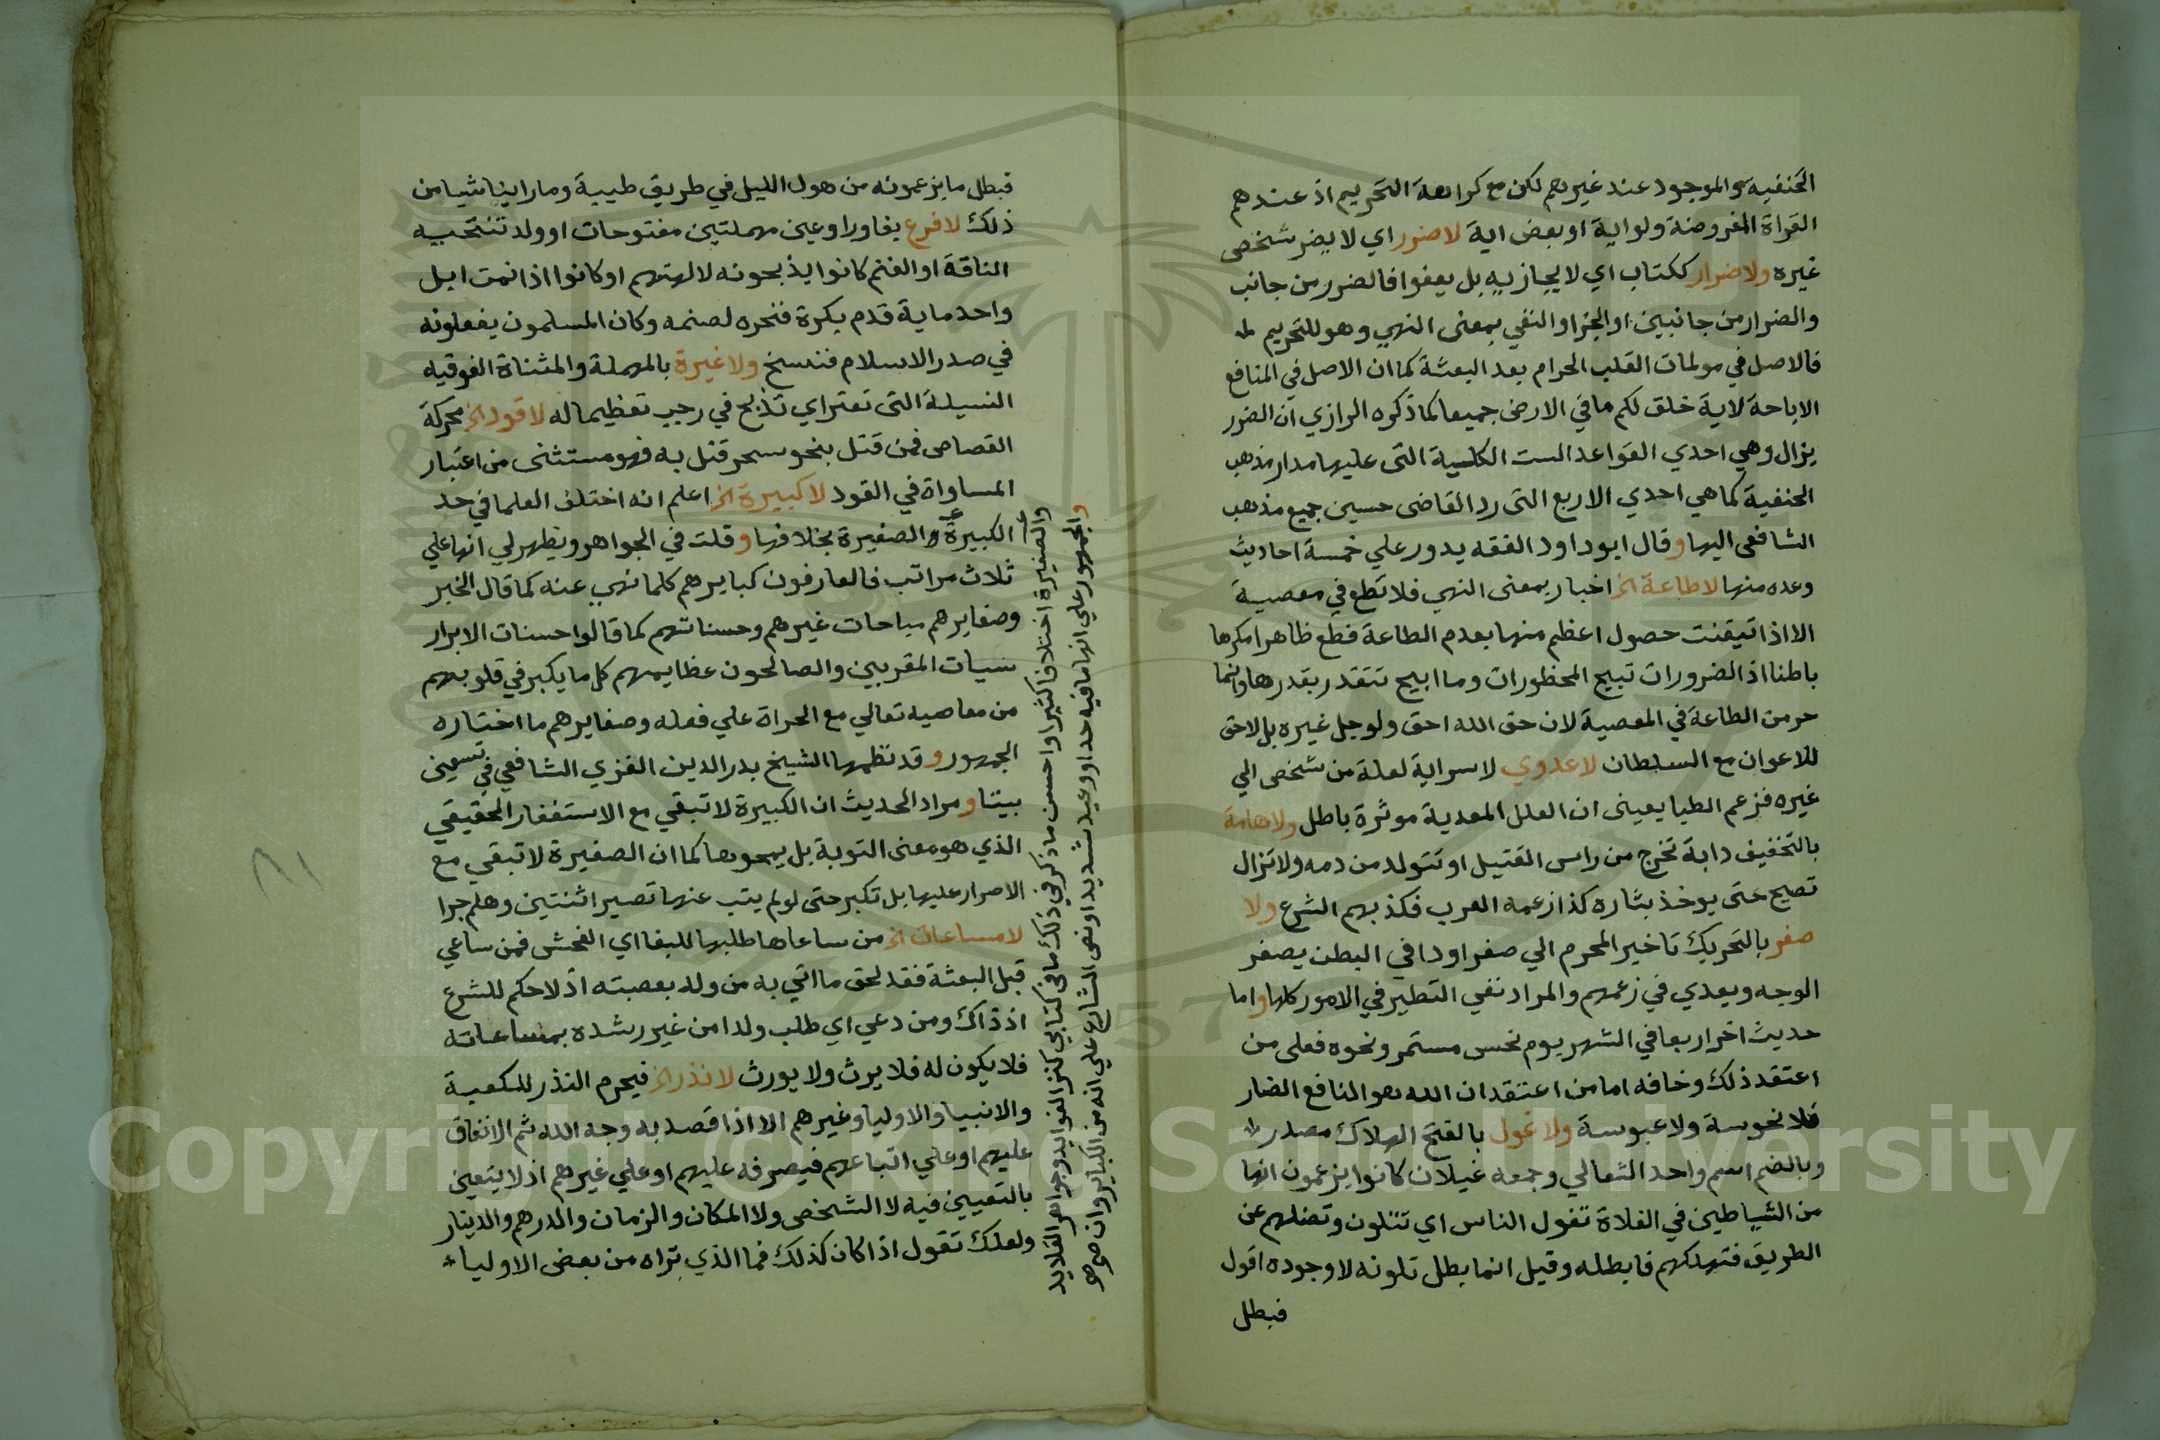 الحنفية والموجود عند غيرهم لكن مع كراهة التحريم اذ عندهم
القراة المفروضة ولو اية او بعض اية لا ضرر اي لا يضر شخص
غيره ولا ضرار ككتاب اي لا يجازيه بل يعفوا فالضرر من جانب
والضرار من جانبين او الجزا والنفي بمعنى النهي وهو للتحريم
فالاصل في مولمات القلب الحرام بعد البعثة كما ان الاصل في المنافع
الاباحة لاية خلق لكم ما في الارض جميعا كما ذكره الرازي ان الضرر
يزال وهي احدي القواعد الست الكلسية التى عليها مدار مذهب
الحنفية كما هي احدي الاربع التى رد القاضى حسين جميع مذهب
الشافعى اليها وقال ابو داود الفقه يدور علي خمسة احاديث
وعده منها لا طاعة الخ اخبار بمعنى النهي فلا تطع في معصية
الا اذا تيقنت حصول اعظم منها بعدم الطاعة فطع ظاهرا مكرها
باطنا اذ الضرورات تبيح المحظورات وما ابيح تتقدر بقدرها وانما
حرمن الطاعة في المعصية لان حق الله احق ولو جل غيره بل لاحق
للاعوان مع السلطان لا عدوي لا سراية لعلة من شخص الي
غيره فزعم الطبايعينى ان العلل المعدية موثرة باطل ولا هامة
بالتخفيف دابة تخرج من راس القتيل او تتولد من دمه ولا تزال
تصيح حتى يوخذ بثاره كذا زعمه العرب فكذبهم الشرع ولا
صفر بالتحريك تاخير المحرم الي صفر او دا في البطن يصفر
الوجه ويعدي في زعمهم والمراد نفي التطير في الامور كلها واما
حديث اخر اربعا في الشهر يوم نحس مستمر ونحوه فعلى من
اعتقد ذلك وخافه اما من اعتقد ان الله هو النافع الضار
فلا نحوسة ولا عبوسة ولا غول بالفتح الهلاك مصدر
وبالضم اسم واحد الثعالي وجمعه غيلان كانوا يزعمون انها
من الشياطين في الفلاة تغول الناس اي تتلون وتضلهم عن
الطريق فتهلكهم فابطله وقيل انما بطل تلونه لا وجوده اقول
فبطل
فبطل ما يزعمونه من هول الليل في طريق طيبة وما راينا شيا من
ذلك لا فرع بفا ورا وعين مهملتين مفتوحات او ولد تنتجيه
الناقة او الغنم كانوا يذبحونه لالهتهم او كانوا اذا نمت ابل
واحد ماية قدم بكرة فنحره لصنمه وكان المسلمون يفعلونه
في صدر الاسلام فنسخ ولا غيرة بالمهملة والمثناة الفوقيه
النسيلة التى تعتر اي تذبح في رجب تعظيما له لا قود الخ محركة
القصاص فمن قتل بنحو سحر قتل به فهو مستثنى من اعتبار
المساواة في القود لا كبيرة الخ اعلم انه اختلف العلما في حد
الكبيرة والصغيرة بخلافها وقلت في الجواهر ويظهر لي انها علي
ثلاث مراتب فالعارفون كبايرهم كلما نهي عنه كما قال الخبر
وصغايرهم مباحات غيرهم وحسناتهم كما قالوا حسنات الابرار
سيات المقربين والصالحون عظايمهم كل ما يكبر في قلوبهم
من معاصيه تعالي مع الجراة علي فعله وصغايرهم ما اختاره
الجمهور وقد نظمها الشيخ بدر الدين الغزي الشافعي في تسعين
بيتا ومراد الحديث ان الكبيرة لا تبقي مع الاستغفار الحقيقي
الذي هو معنى التوبة بل يمحوها كما ان الصغيرة لا تبقي مع
الاصرار عليها بل تكبر حتى لو لم يتب عنها تصير اثنتين وهلم جرا
لا مساعات الخ من ساعاها طلبها للبغا اي الفحش فمن ساعي
قبل البعثة فقد لحق ما اتي به من ولد بعصبته اذ لا حكم للشرع
اذ ذاك ومن دعي اي طلب ولدا من غير رشده بمساعاته
فلا يكون له فلا يرث ولا يورث لا نذر الخ فيحرم النذر للكعبة
والانبيا والاوليا وغيرهم الا اذا قصد به وجه الله ثم الانفاق
عليهم او علي اتباعهم فيصرفه عليهم او علي غيرهم اذ لا يتعين
بالتعيين فيه لا الشخص ولا المكان والزمان والدرهم والدينار
ولعلك تقول اذا كان كذلك فما الذي تراه من بعض الاولياء
والصغيرة اختلافا كثيرا واحسن ما ذكر في ذلك ما في كتابي كنز الفوايد وجواهر القلايد
والجمهور علي انها ما فيه حد او وعيد شديد او نص الشارع علي انه من الكباير وان
Copyright © King Saud University
1957